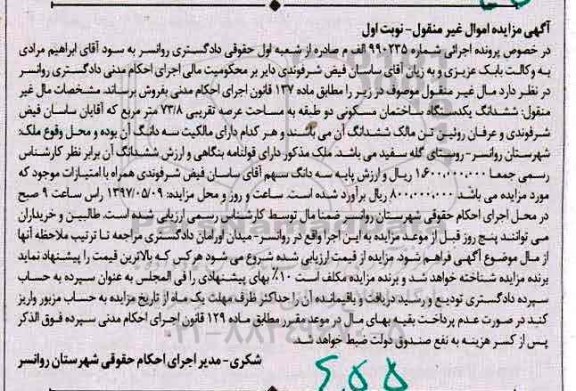 آگهی مزایده اموال غیر منقول- نوبت اول
در خصوص پرونده اجرائی شماره ۹۹۰۲۳۵ الف م صادره از شعبه اول حقوقی دادگستری روانسر به سود آقای ابراهیم مرادی
به وکالت بابک عزیزی و به زیان آقای ساسان فیض شرفوندی دایر بر محکومیت مالی اجرای احکام مدنی دادگستری روانسر
در نظر دارد مال غیر منقول موصوف در زیر را مطابق ماده ۱۳۷ قانون اجرای احکام مدنی بفروش برساند. مشخصات مال غیر
منقول: ششدانگ یکدستگاه ساختمان مسکونی دو طبقه به مساحت عرصه تقریبی ۷۳/۸ متر مربع که آقایان ساسان فیض
شرفوندی و عرفان روئین تن مالک ششدانگ آن می باشند و هر کدام دارای مالکیت سه دانگ آن بوده و محل وقوع ملک:
شهرستان روانسر- روستای گله سفید می باشد. ملک مذکور دارای قولنامه بنگاهی و ارزش ششدانگ آن برابر نظر کارشناس
رسمی جمعا ۱/۶۰۰/۰۰۰/۰۰۰ ریال و ارزش پایه سه دانگ سهم آقای ساسان فیض شرفوندی همراه با امتیازات موجود که
مورد مزایده می باشد ۸۰۰/۰۰۰/۰۰۰ ریال برآورد شده است. ساعت و روز و محل مزایده: ۱۳۹۷/۰۵/۰۹ راس ساعت ۹ صبح
در محل اجرای احکام حقوقی شهرستان روانسر ضمنا مال توسط کارشناس رسمی ارزیابی شده است. طالبین و خریداران
می توانند پنج روز قبل از موعد مزایده به این اجرا واقع در روانسر- میدان اورامان دادگستری مراجعه تا ترتیب ملاحظه آنها
از مال موضوع آگهی فراهم شود. مزایده از قیمت ارزیابی شده شروع می شود هرکس که بالاترین قیمت را پیشنهاد نماید
برنده مزایده شناخته خواهد شد و برنده مزایده مکلف است ۱۰٪ بهای پیشنهادی را فی المجلس به عنوان سپرده به حساب
سپرده دادگستری تودیع و رسید دریافت و باقیمانده آن را حداکثر ظرف مهلت یک ماه از تاریخ مزایده به حساب مزبور واریز
کند در صورت عدم پرداخت بقیه بهای مال در موعد مقرر مطابق ماده ۱۲۹ قانون اجرای احکام مدنی سپرده فوق الذکر
پس از کسر هزینه به نفع صندوق دولت ضبط خواهد شد.
شکری- مدیر اجرای احکام حقوقی شهرستان روانسر